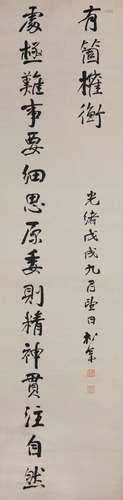 處極難事要細思原委則精神貫注自然
有箇權衡
光緒戊戌九月望日松年